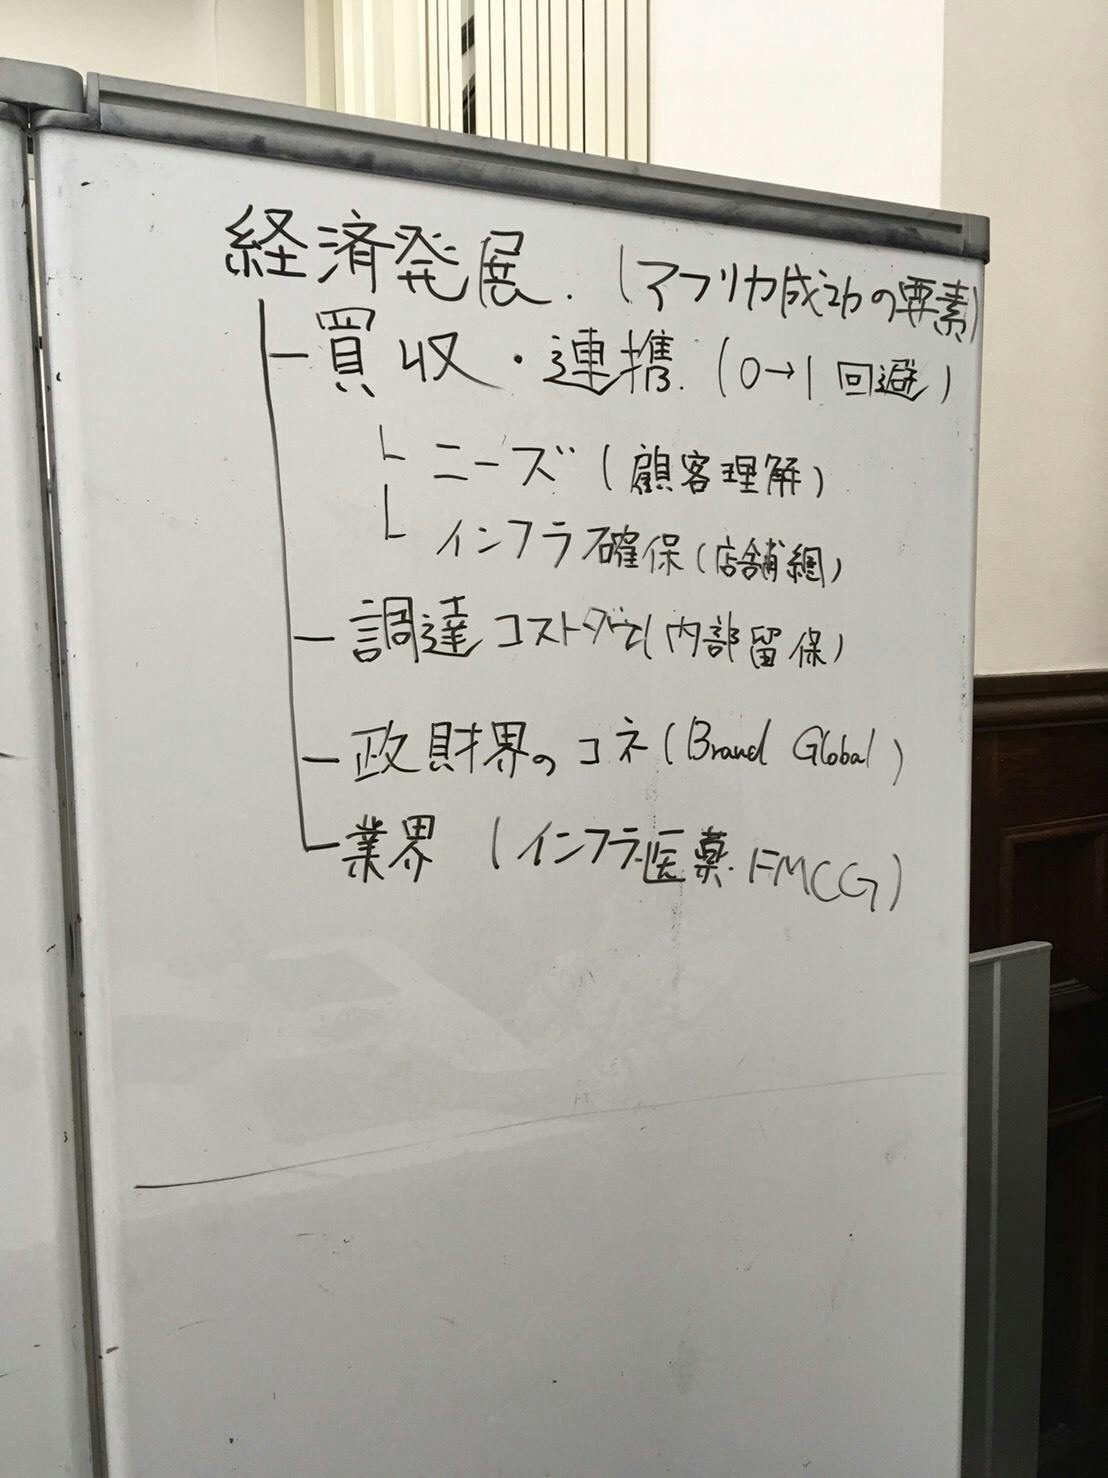 経済発展. (アフリカ成功の要素)
買収・連携. (0→1 回避)
ニーズ (顧客理解)
インフラ確保 (店舗網)
調達コスト (内部留保)
政財界のコネ (Brand Global)
業界 (インフラ.医薬.FMCG)